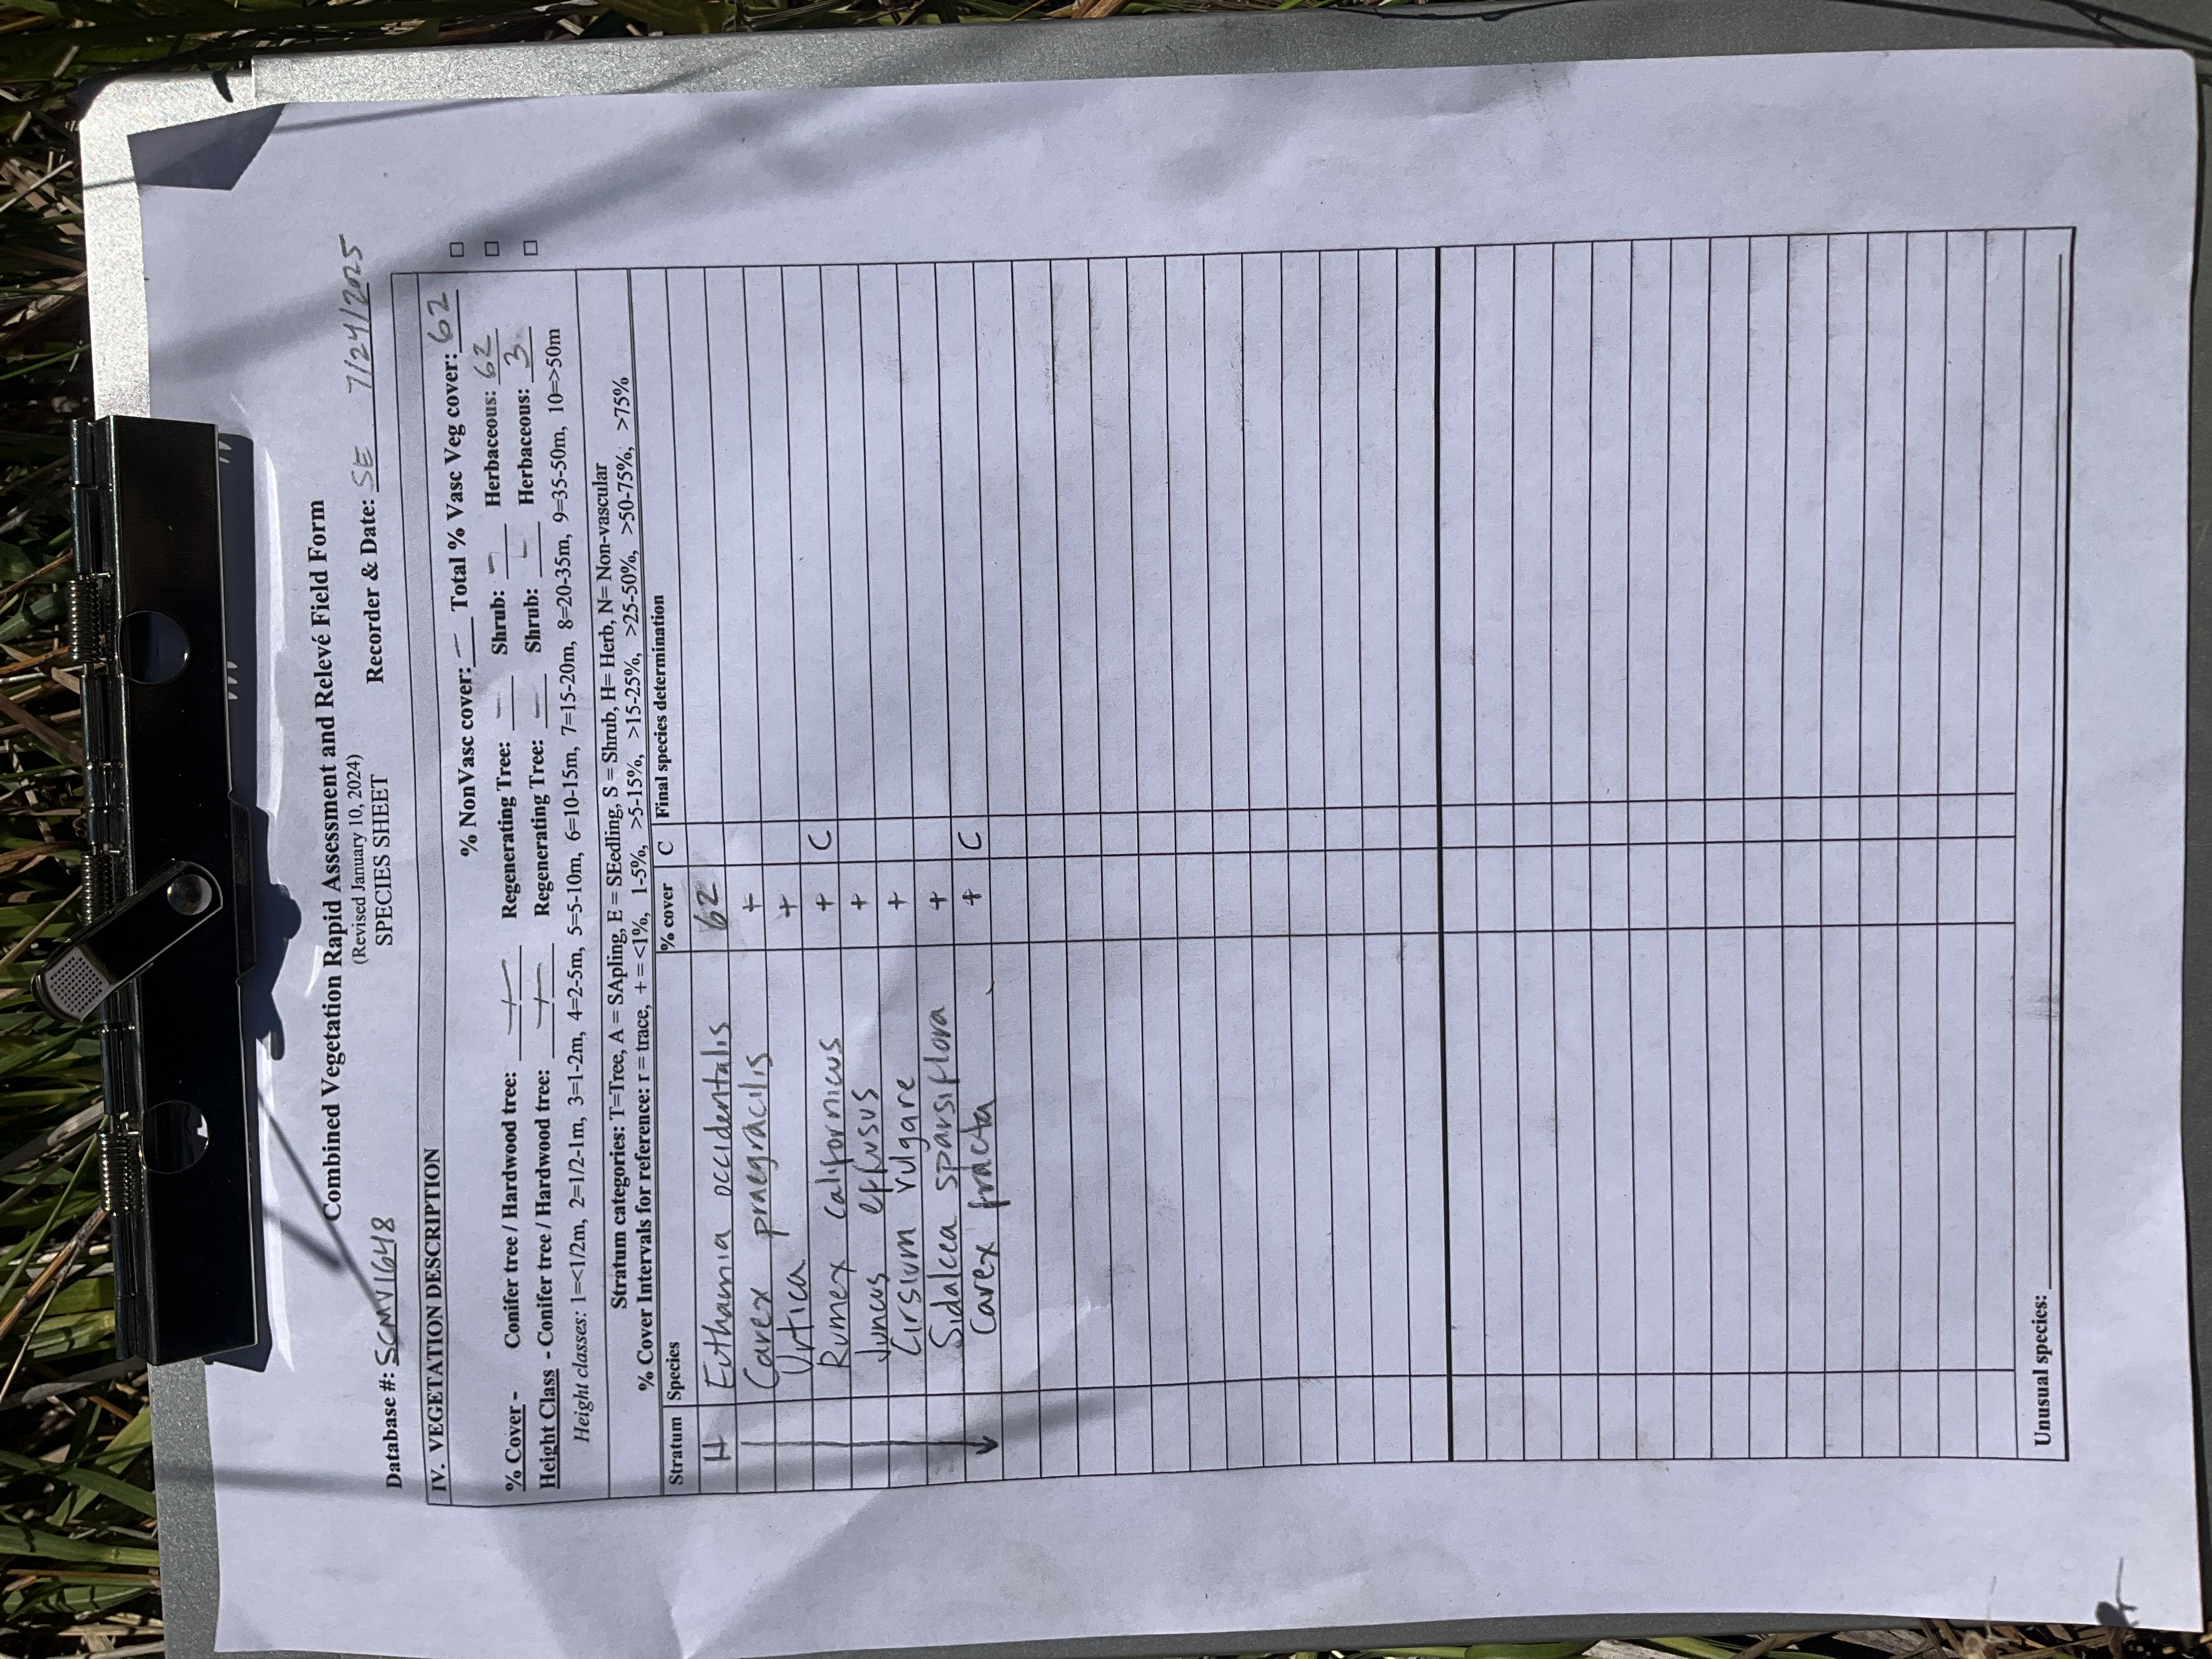 Combined Vegetation Rapid Assessment and Relevé Field Form
(Revised January 10, 2024)
SPECIES SHEET
Database #: SCMV1648 Recorder & Date: SE 7/24/2025
IV. VEGETATION DESCRIPTION
% NonVasc cover: — Total % Vasc Veg cover: 62 □
% Cover - Conifer tree / Hardwood tree: — / — Regenerating Tree: — Shrub: — Herbaceous: 62 □
Height Class - Conifer tree / Hardwood tree: — / — Regenerating Tree: — Shrub: — Herbaceous: 3 □
Height classes: 1=<1/2m, 2=1/2-1m, 3=1-2m, 4=2-5m, 5=5-10m, 6=10-15m, 7=15-20m, 8=20-35m, 9=35-50m, 10=>50m
Stratum categories: T=Tree, A = SApling, E = SEedling, S = Shrub, H= Herb, N= Non-vascular
% Cover Intervals for reference: r = trace, + = <1%, 1-5%, >5-15%, >15-25%, >25-50%, >50-75%, >75%
Stratum Species % cover C Final species determination
H Euthamia occidentalis 62
Carex praegracilis +
Urtica +
Rumex californicus + C
Juncus effusus +
Cirsium vulgare +
Sidalcea sparsiflora +
Carex fracta + C
Unusual species: